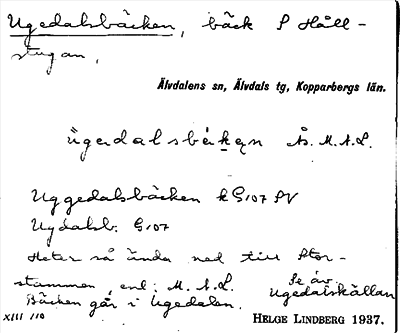 Ugedalsbäcken, bäck S Håll-
stugan,
Älvdalens sn, Älvdals tg, Kopparbergs län.
Ås. M.A.L.
Uggedalsbäcken k G107 SV
Ugdalsb. G107
Heter så ända ned till Stor-
stammen, enl. M.A.L. Se äv.
Ugedalskällan
Bäcken går i Ugedalen.
XIII 110 HELGE LINDBERG 1937.